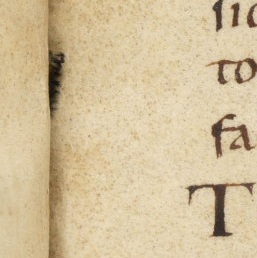 sic
to
fa
T